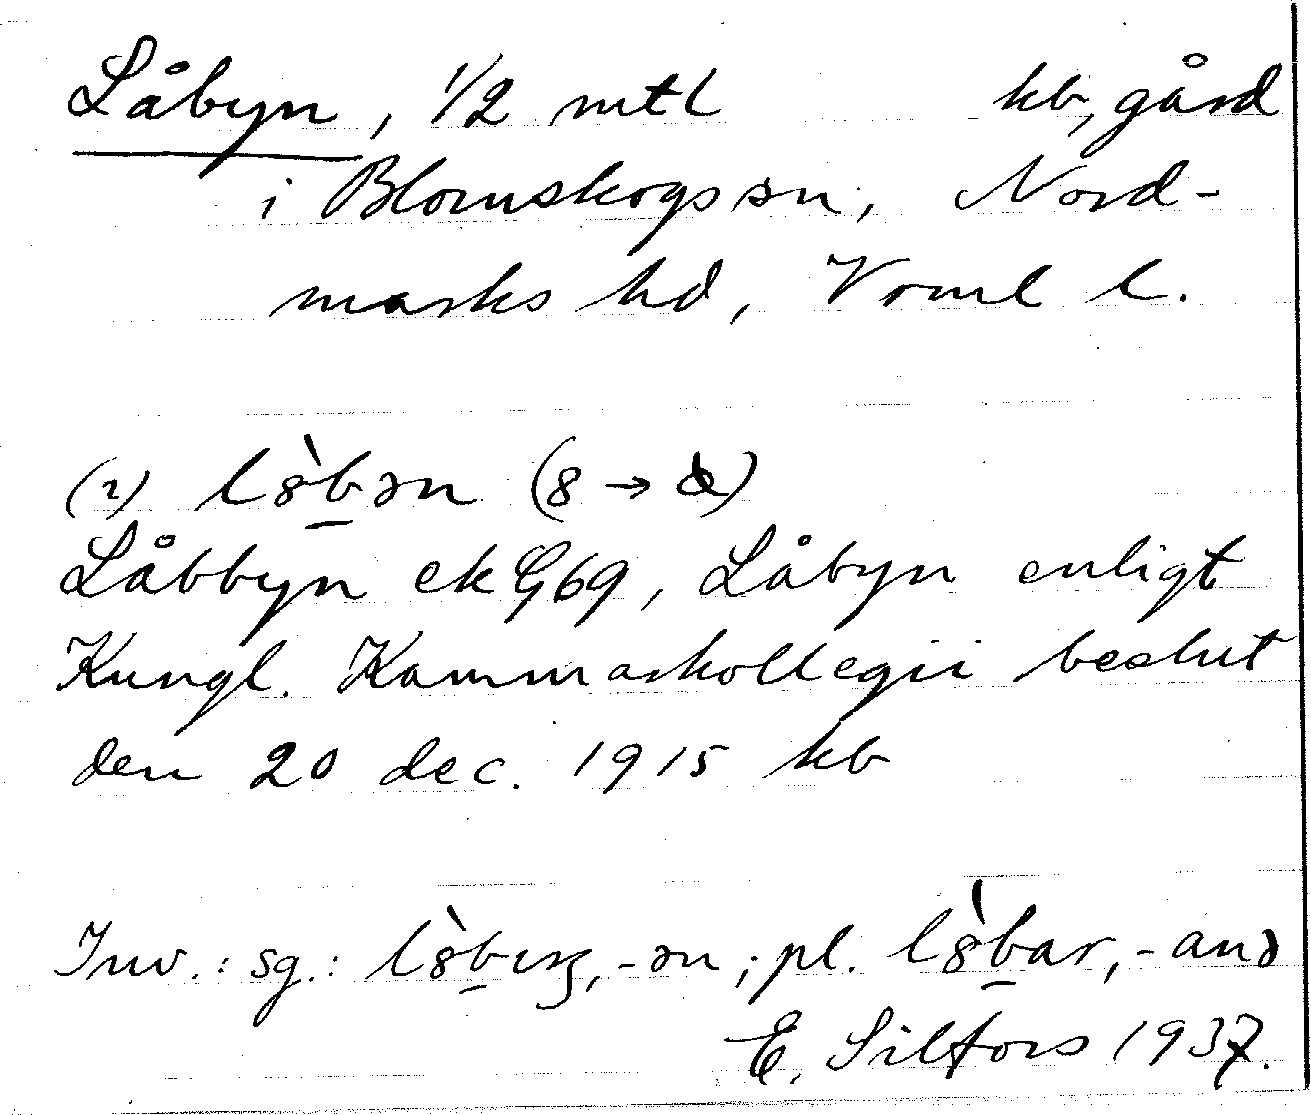 Låbyn, 1/2 mtl kb, gård
i Blomskogs sn, Nord-
marks hd, Vrml l.
(2) l8̀b̲ən (8 →
Låbbyn ek G69, Låbyn enligt
Kungl. Kammarkollegii beslut
den 20 dec. 1915 kb
Inv.: sg.: l8̀b̲ɩŋ, -ən; pl. l8̀b̲ar, -anə
E. Silfors 1937.